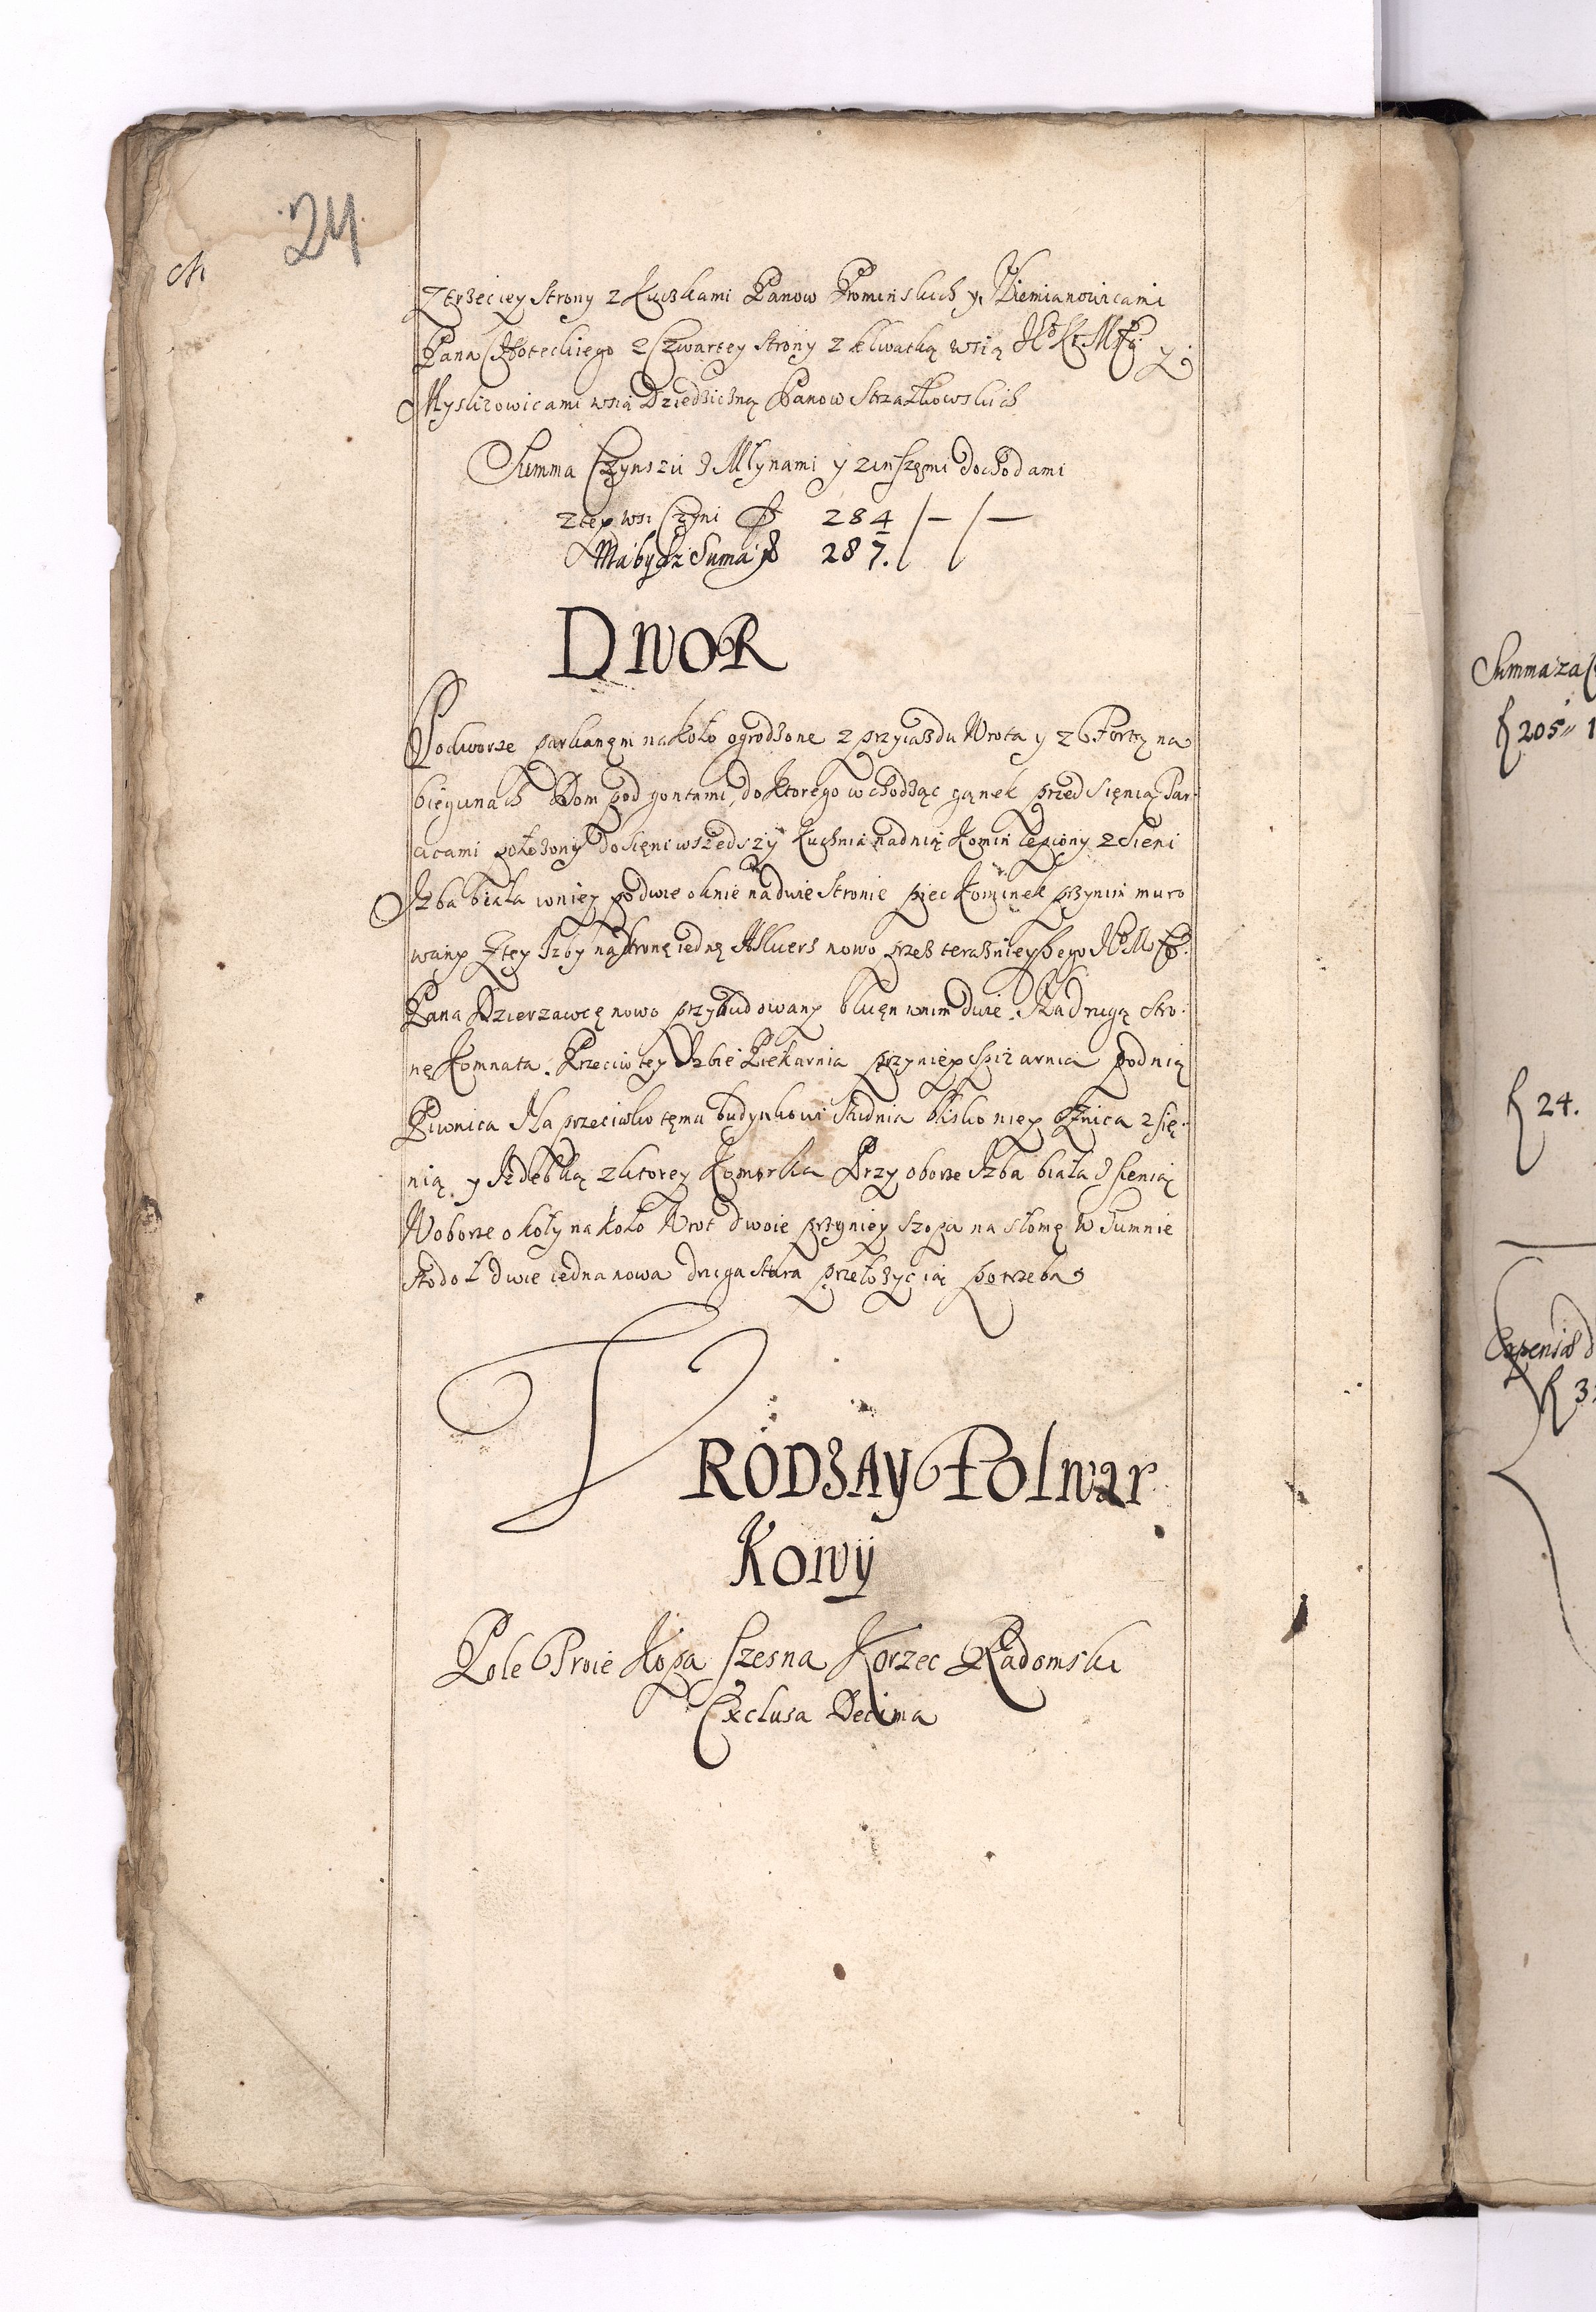 24
Z trzeciey Strony z Kuczkami Panow Prominskich y Niemianowicami
Pana Koteckiego z Czwartey Strony z Klwatką wsią Je° Kr: Mći y
Myslizowicami wsią Dziedziczną Panow Strzałkowskich
Summa Czynszu z Młynami y z inszęmi dochodami
z tey wsi Czyni f 284 /—/—
Ma bydz Suma f 287. / /
DWOR
Podworze parkanęm na koło ogrodzone z przyiazdu Wrota y z Fortą na
biegunach Dom pod gontami, do Ktorego wchodząc ganek przed Sięnią Tar-
cicami położony do Sięni wszedszy Kuchnia nad nią Komin lepiony z Sieni
Izba biała w niey po dwie oknie na dwie Stronie piec Kominek przynim muro
wany Z tey Izby na stronę iedną Alkierz nowo przez teraznieyszego Je° M
Pana Dzierzawcę nowo przybudowany okięn wnim dwie. Na drugą Stro-
nę Komnata. Przeciw tey Izbie Piekarnia przyniey Spizarnia pod nią
Piwnica Na przeciwko tęmu budynkowi Studnia blisko niey Oznica z się-
nią y Izdebką z ktorey Komorka Przy oborze Izba biała z sienią
W oborze okoły na koło Wrot dwoie przyniey Szopa na słomę W Gumnie
Stodoł dwie iedna nowa druga stara przełozyc ią potrzeba
URODZAY Folwar
Kowy
Pole Proie Kopa Szesna Korzec Radomski
Exclusa Decima
Summa za
f 205 1
f 24.
Expensa d
f 3